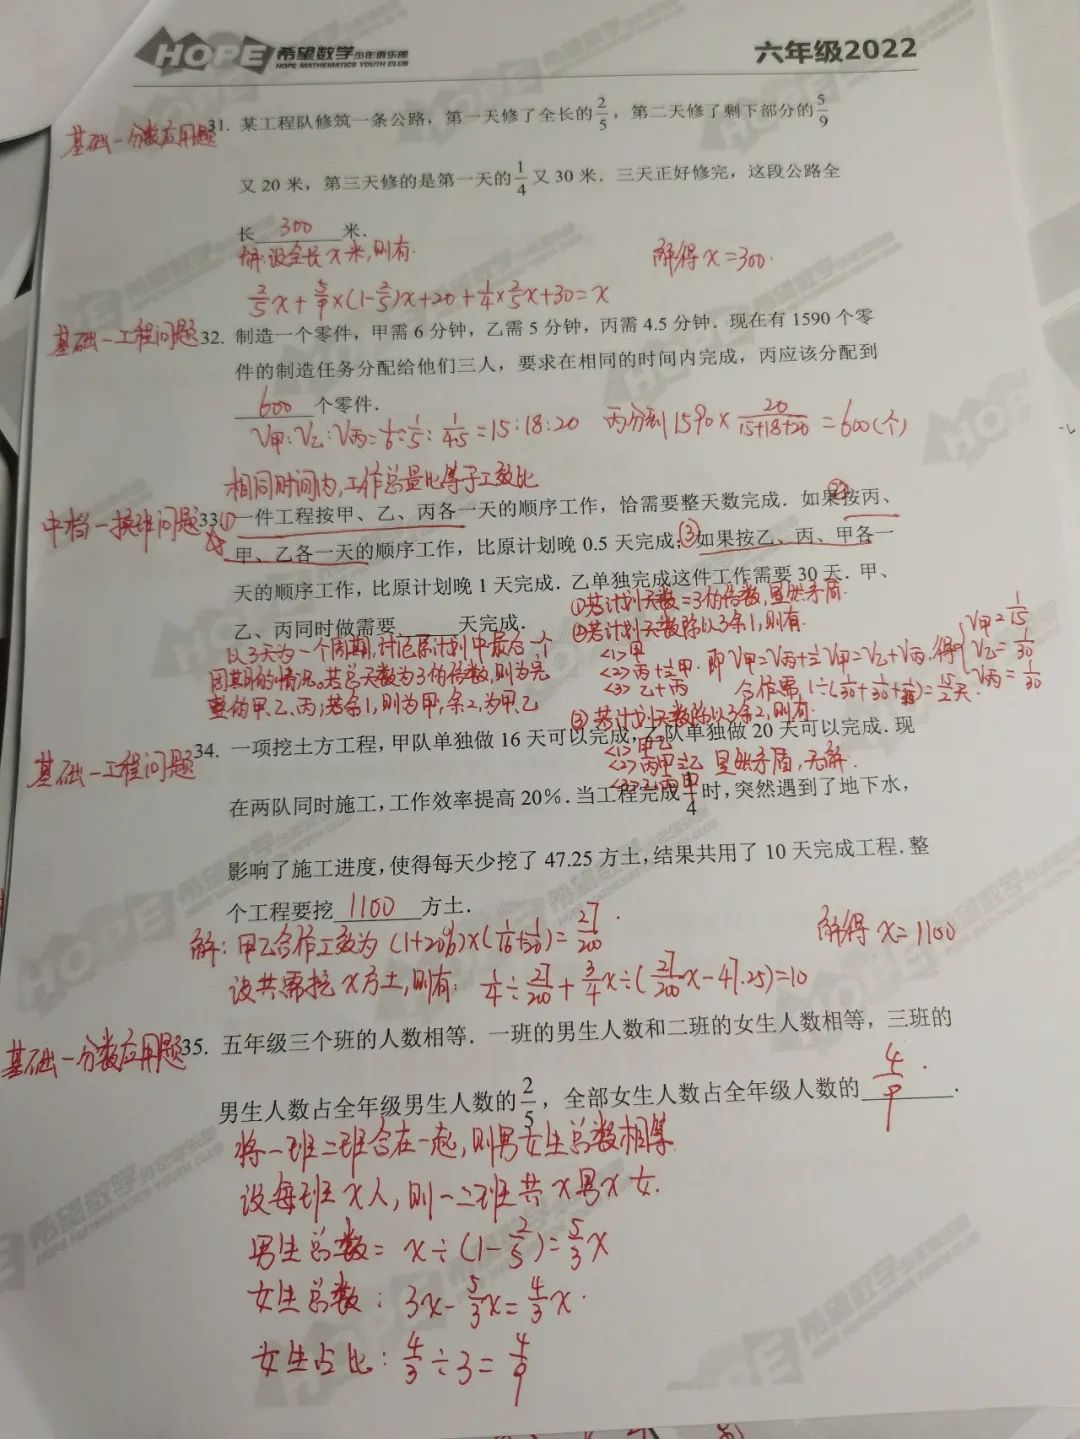 HOPE 希望数学少年俱乐部
HOPE MATHEMATICS YOUTH CLUB
六年级2022
基础-分数应用题
31. 某工程队修筑一条公路，第一天修了全长的2/5，第二天修了剩下部分的5/9
又 20 米，第三天修的是第一天的1/4又 30 米．三天正好修完，这段公路全
长 300 米．
解:设全长x米,则有.
解得x=300.
2/5x+5/9×(1-2/5)x+20+1/4×2/5x+30=x
基础-工程问题
32. 制造一个零件，甲需 6 分钟，乙需 5 分钟，丙需 4.5 分钟．现在有 1590 个零
件的制造任务分配给他们三人，要求在相同的时间内完成，丙应该分配到
600 个零件．
V甲:V乙:V丙=1/6:1/5:1/4.5=15:18:20 丙分到1590×20/(15+18+20)=600(个)
相同时间内,工作总量比等于工效比
中档-换班问题
33. ①一件工程按甲、乙、丙各一天的顺序工作，恰需要整天数完成．如果②按丙、
甲、乙各一天的顺序工作，比原计划晚 0.5 天完成；③如果按乙、丙、甲各一
天的顺序工作，比原计划晚 1 天完成．乙单独完成这件工作需要 30 天．甲、
乙、丙同时做需要 天完成．
以3天为一个周期,讨论原计划中最后一个
周期的情况。若总天数为3的倍数,则为完
整的甲、乙、丙;若余1,则为甲;余2,为甲乙
①若计划天数=3的倍数,显然矛盾.
②若计划天数除以3余1,则有.
<1>甲
<2>丙+1/2甲. 即V甲=V丙+1/2V甲=V乙+V丙,得{V甲=1/15 V乙=1/30 V丙=1/30
<3>乙+丙 合作需1÷(1/30+1/30+1/15)=15/2天.
③若计划天数除以3余2,则有.
<1>甲乙
<2>丙甲1/2乙 显然矛盾,无解.
<3>乙丙甲
基础-工程问题
34. 一项挖土方工程，甲队单独做 16 天可以完成，乙队单独做 20 天可以完成．现
在两队同时施工，工作效率提高 20%．当工程完成1/4时，突然遇到了地下水，
影响了施工进度，使得每天少挖了 47.25 方土，结果共用了 10 天完成工程．整
个工程要挖 1100 方土．
解:甲乙合作工效为(1+20%)×(1/16+1/20)=27/200.
解得x=1100
设共需挖x方土,则有: 1/4÷27/200+3/4x÷(27/200x-47.25)=10
基础-分数应用题
35. 五年级三个班的人数相等．一班的男生人数和二班的女生人数相等，三班的
男生人数占全年级男生人数的2/5，全部女生人数占全年级人数的 4/9 ．
将一班二班合在一起,则男女生总数相等
设每班x人,则一二班共x男x女.
男生总数= x÷(1-2/5)=5/3x
女生总数: 3x-5/3x=4/3x.
女生占比: 4/3÷3=4/9